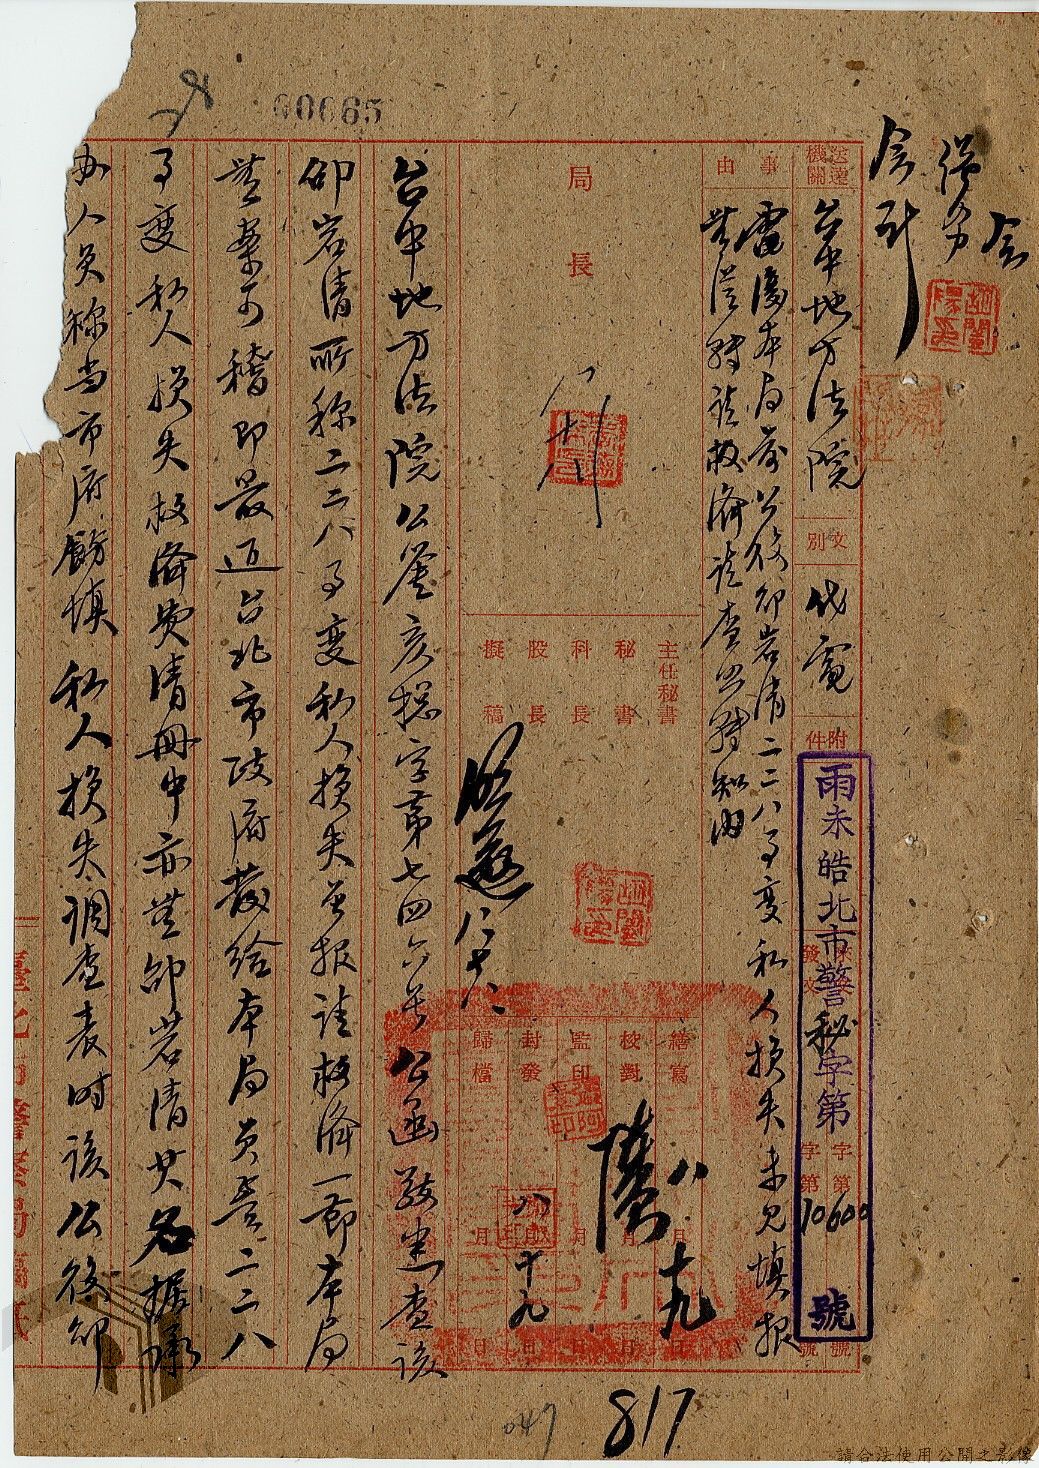 60665
總務
會
會計
送達機關
台中地方法院
文別
代電
附件
雨未皓北市警秘字第10600號
事由
電復本局前公役邱岩清二二八事變私人損失未見填報
無從轉請救濟請查照轉知由
局長
主任秘書
秘書
科長
股長
擬稿
繕寫
校對
監印
封發
歸檔
八十九
八十九
台中地方法院公鑒亥捴字第七四六号公函敬悉查該
邱岩清所称二二八事變私人損失曾报請救濟一節本局
無案可稽即最近台北市政府發給本局員警二二八
事變私人損失救濟費清冊中亦無邱岩清其名据承
办人員称当市府飭填私人損失調查表时該公役邱
臺北市警察局稿紙
817
047
請合法使用公開之影像